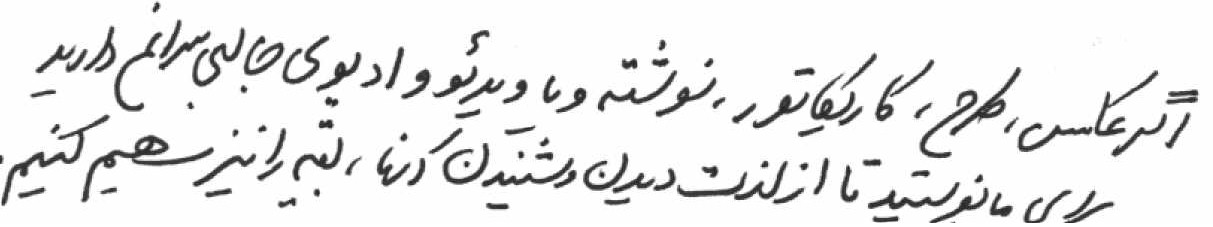 اگر عکس، طرح، کاریکاتور، نوشته و یا ویدئو و ادیوی جالبی سراغ دارید
برای ما بفرستید تا از لذت دیدن و شنیدن آنها، بقیه را نیز سهیم کنیم.